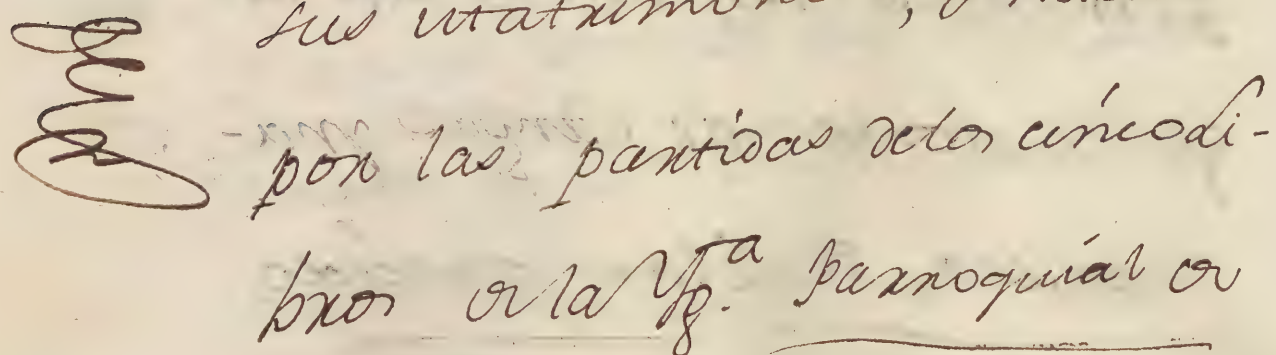 sus Matrimonio
por las partidas delos cinco li-
bros de la Yg.ª Parroquial de